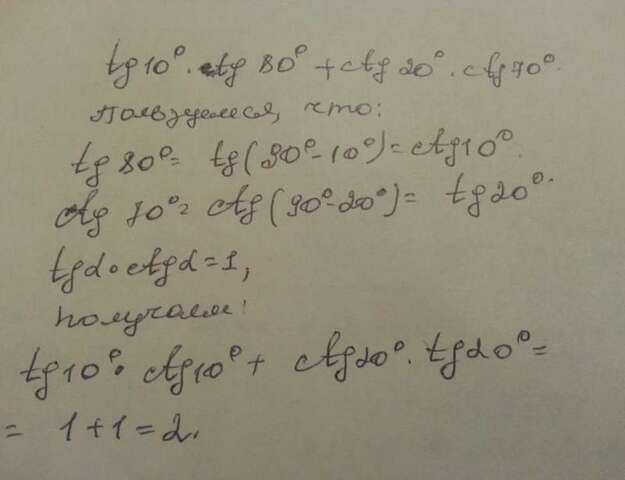 tg10°·tg 80°+ctg 20°·ctg70°.
Пользуемся, что:
tg 80°= tg(90°-10°)=ctg10°.
ctg 70°= ctg(90°-20°)= tg20°.
tgα·ctgα=1,
получаем:
tg10°·ctg10°+ ctg20°·tg20°=
= 1+1=2.